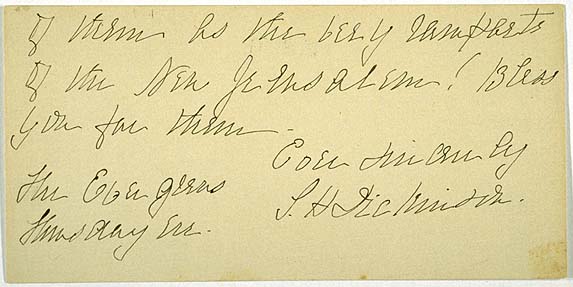 of them as the very ramparts
of the New Jerusalem! Bless
you for them.
Ever sincerely
S. H. Dickinson.
The Evergreens
Thursday Eve.